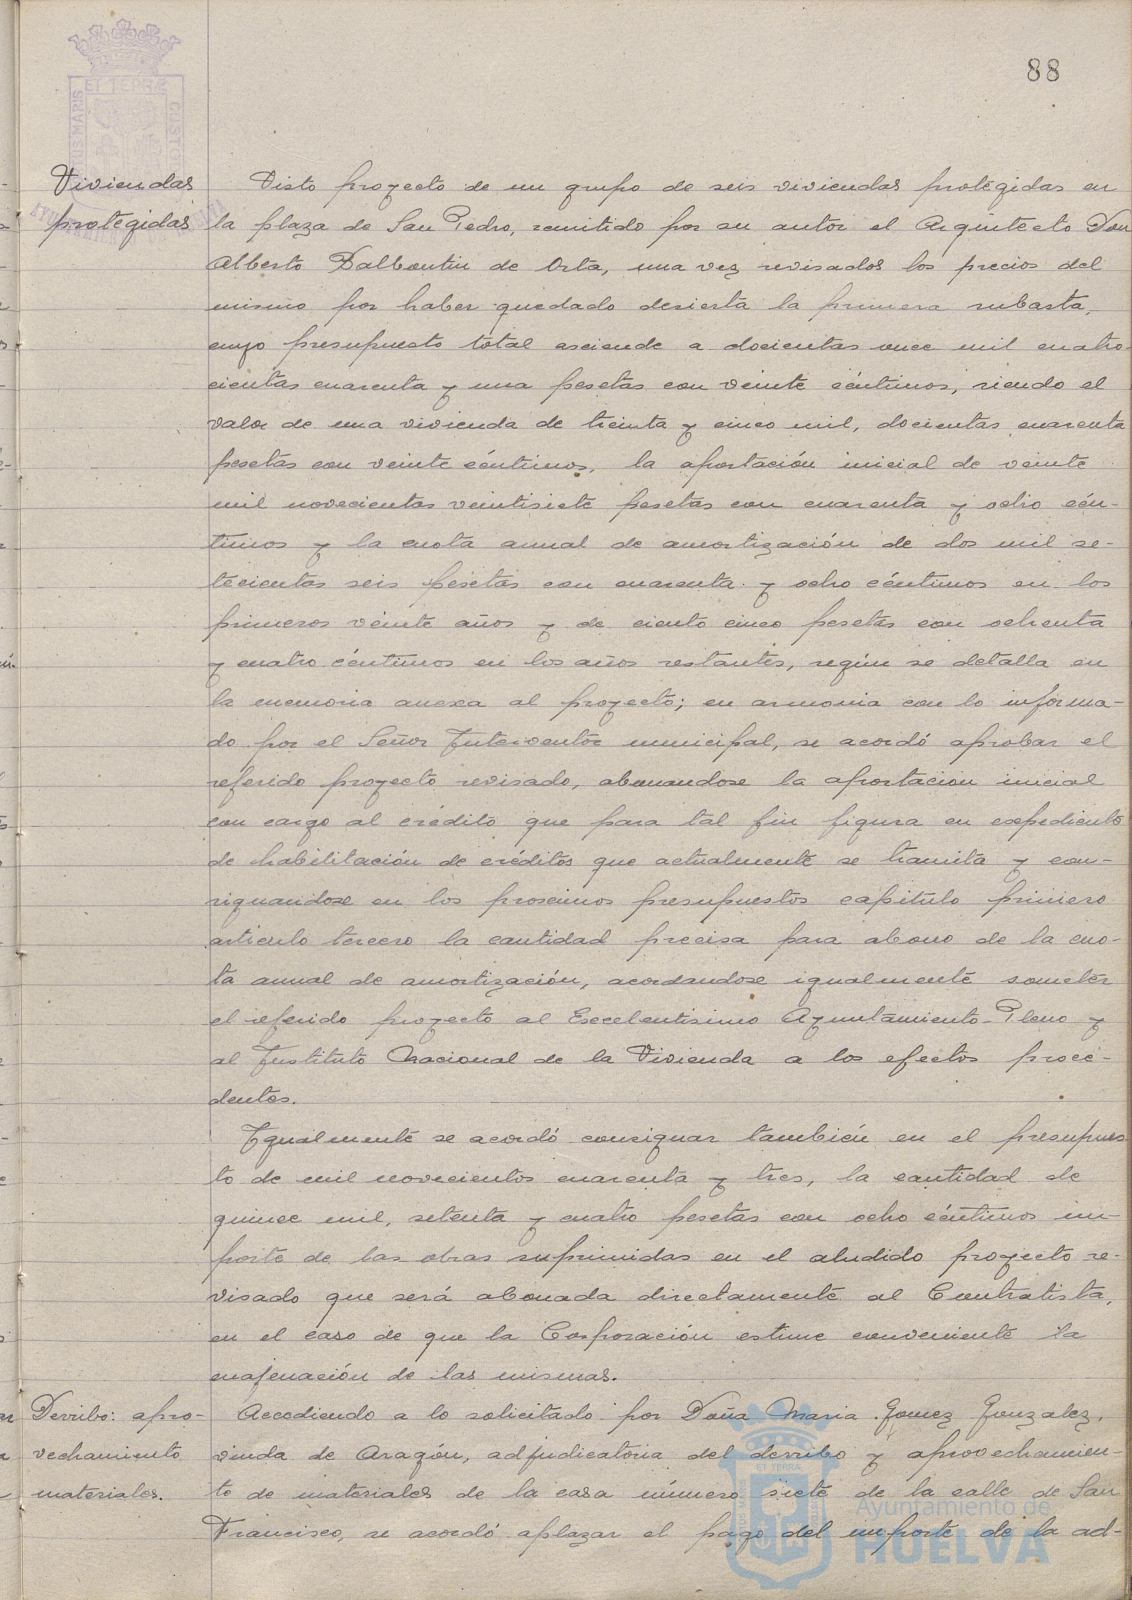 88
Viviendas
protegidas
Visto proyecto de un grupo de seis viviendas protegidas en
la plaza de San Pedro, remitido por su autor el Arquitecto Don
Alberto Balbontin de Orta, una vez revisados los precios del
mismo por haber quedado desierta la primera subasta,
cuyo presupuesto total asciende a docientas once mil cuatro-
cientas cuarenta y una pesetas con veinte céntimos, siendo el
valor de una vivienda de treinta y cinco mil, docientas cuarenta
pesetas con veinte céntimos, la aportación inicial de veinte
mil novecientas veintisiete pesetas con cuarenta y ocho cén-
timos y la cuota anual de amortización de dos mil se-
tecientas seis pesetas con cuarenta y ocho céntimos en los
primeros veinte años y de ciento cinco pesetas con ochenta
y cuatro céntimos en los años restantes, según se detalla en
la memoria anexa al proyecto; en armonia con lo informa-
do por el Señor Interventor municipal, se acordó aprobar el
referido proyecto revisado, abonandose la aportacion inicial
con cargo al crédito que para tal fin figura en expediente
de habilitación de créditos que actualmente se tramita y con-
signandose en los proximos presupuestos capitulo primero
articulo tercero la cantidad precisa para abono de la cuo-
ta anual de amortización, acordandose igualmente someter
el referido proyecto al Excelentisimo Ayuntamiento-Pleno y
al Instituto Nacional de la Vivienda a los efectos proce-
dentes.
Igualmente se acordó consignar también en el presupues
to de mil novecientos cuarenta y tres, la cantidad de
quince mil, setenta y cuatro pesetas con ocho céntimos im-
porte de las obras suprimidas en el aludido proyecto re-
visado que será abonada directamente al Contratista,
en el caso de que la Corporación estime conveniente la
enajenación de las mismas.
Derribo: apro-
vechamiento
materiales.
Accediendo a lo solicitado por Doña Maria Gomez Gonzalez,
viuda de Aragón, adjudicatoria del derribo y aprovechamien-
to de materiales de la casa número siete de la calle de San
Francisco, se acordó aplazar el pago del importe de la ad-
Ayuntamiento de
HUELVA